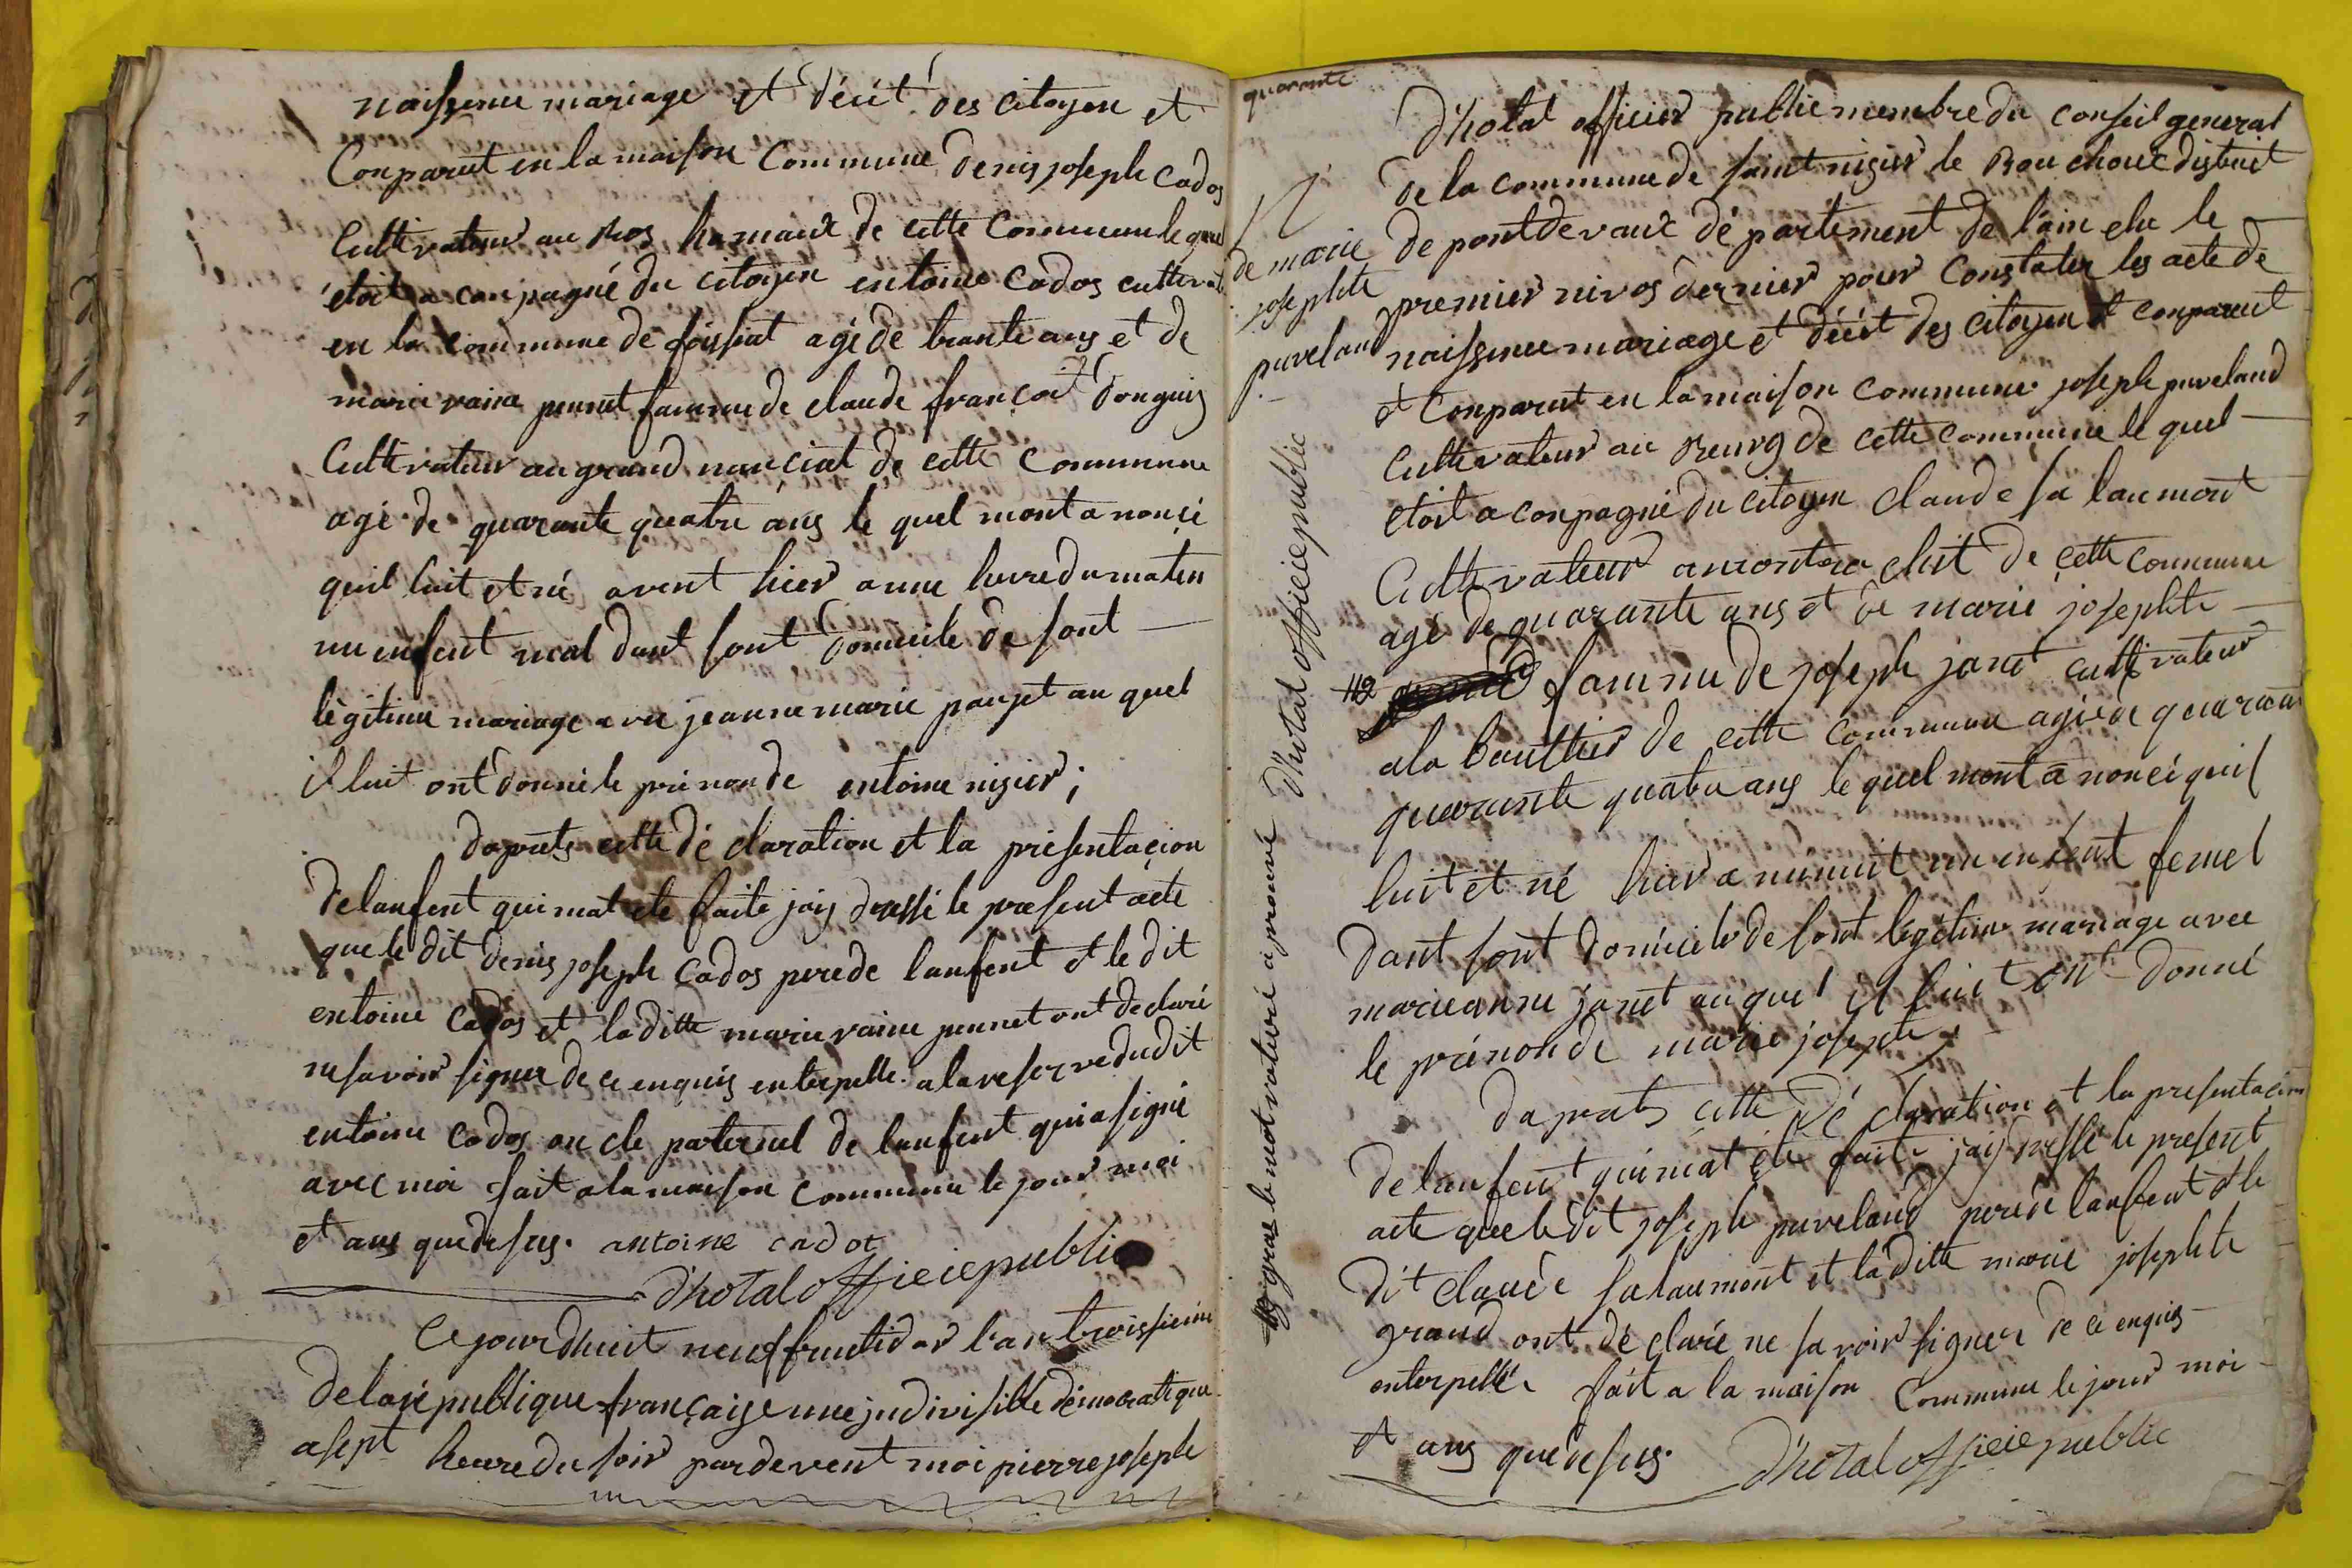 naissence mariage et décit des citoyen et
Conparut en la maison Commune denis joseph cados
Cultivateur au hamaux de cette Commune le quel
etoit a conpagné du citoyen entoine Cados cultivat
en la commune de foissiat agé de trante ans et de
marie raine pennet famme de claude françoit donguis
Cultivateur au grand nanciat de cette Commune
agé de quarante quatre ans le quel mont a nonsé
quil luit et né avent hier a une heure du maten
un enfent mal dant sont domicile de sont
légitime mariage avec jeanne marie paujet au quel
il luit ont donné le prénon de entoine nisier ;
daprets cette dé claration et la présentaçion
de lanfent qui mat ete faite jais dressé le present acte
que le dit denis joseph Cados pere de lanfent et le dit
entoine Cados et la ditte marie raine pennet ont declaré
ne savoir signer de ce enquis enterpelle a la reserve du dit
entoine Cados on cle paternel de lanfent qui a signé
avec moi fait a la maison commune le jour moi
et ans que desus. antoine cadot
d'hotal officie public
Ce jourdhuit neuf fruttidor l'an troissieme
de la république française une indivisible démocratique
a sept heure du soir par devent moi pierre joseph
quarante
d'hotal officier public membre du conseil general
de la commune de saint nisier le Bouchoux distrit
de pontdevaux dé partement de l'ain elu le
premier nivos dernier pour Constater les acte de
naissence mariage et décit des citoyen et conparut
et Conparut en la maison commune joseph puveland
Cultivateur au Bourg de cette commune le quel
etoit a conpagné du citoyen claude salaumont
Cultivateur a montra chit de cette commune
agé de quarante ans et de marie josephte
famme de joseph janet cultivateur
a la bouttier de cette commune agé de quarante
quarante quatre ans le quel mont a nonsé quil
luit et né hier a nunuit un enfent femel
dant sont domicile de sont legitime mariage avec
marie anne janet au quel il luit ont donné
le prénon de marie josepte
daprets cette dé claration et la presentaçion
de lanfent qui mat été faite jais dressé le present
acte que le dit joseph puveland pere de lanfent et le
dit claude salaumont et la ditte marie josephte
grand ont dé claré ne savoir signer de ce enquis
enterpelle fait a la maison Commune le jour moi
et ans que desus. d'hotal officie public
N
de marie
josephte
puveland
le mot raturé aprouvé d'hotal officie public